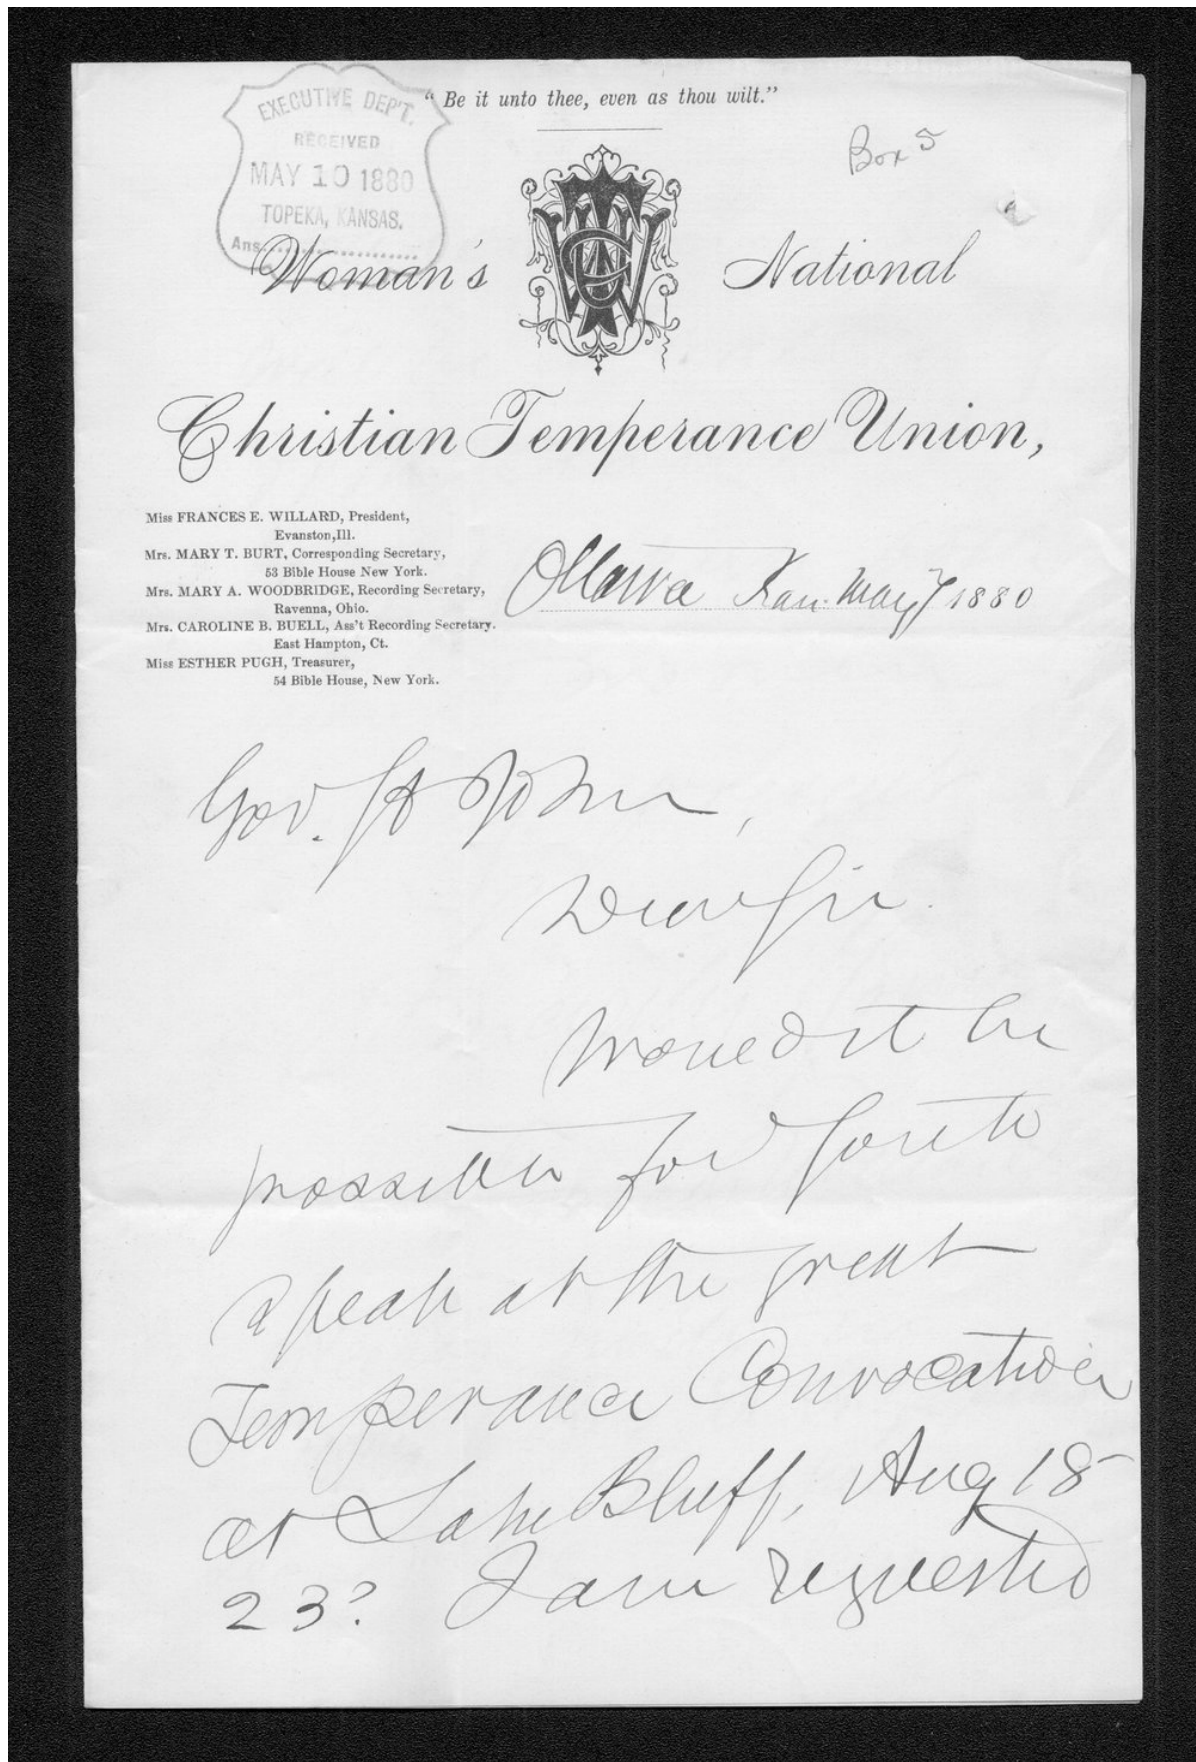 "Be it unto thee, even as thou wilt."
EXECUTIVE DEP'T.
RECEIVED
MAY 10 1880
TOPEKA, KANSAS.
Ans.
Box 5
WCTU
Woman's National
Christian Temperance Union,
Miss FRANCES E. WILLARD, President,
Evanston, Ill.
Mrs. MARY T. BURT, Corresponding Secretary,
53 Bible House New York.
Mrs. MARY A. WOODBRIDGE, Recording Secretary,
Ravenna, Ohio.
Mrs. CAROLINE B. BUELL, Ass't Recording Secretary.
East Hampton, Ct.
Miss ESTHER PUGH, Treasurer,
54 Bible House, New York.
Ottawa Kan. May 7 1880
Gov. St John,
Dear Sir.
Would it be
possible for you to
speak at the great
Temperance Convocation
at Lake Bluff, Aug 18
23? I am requested